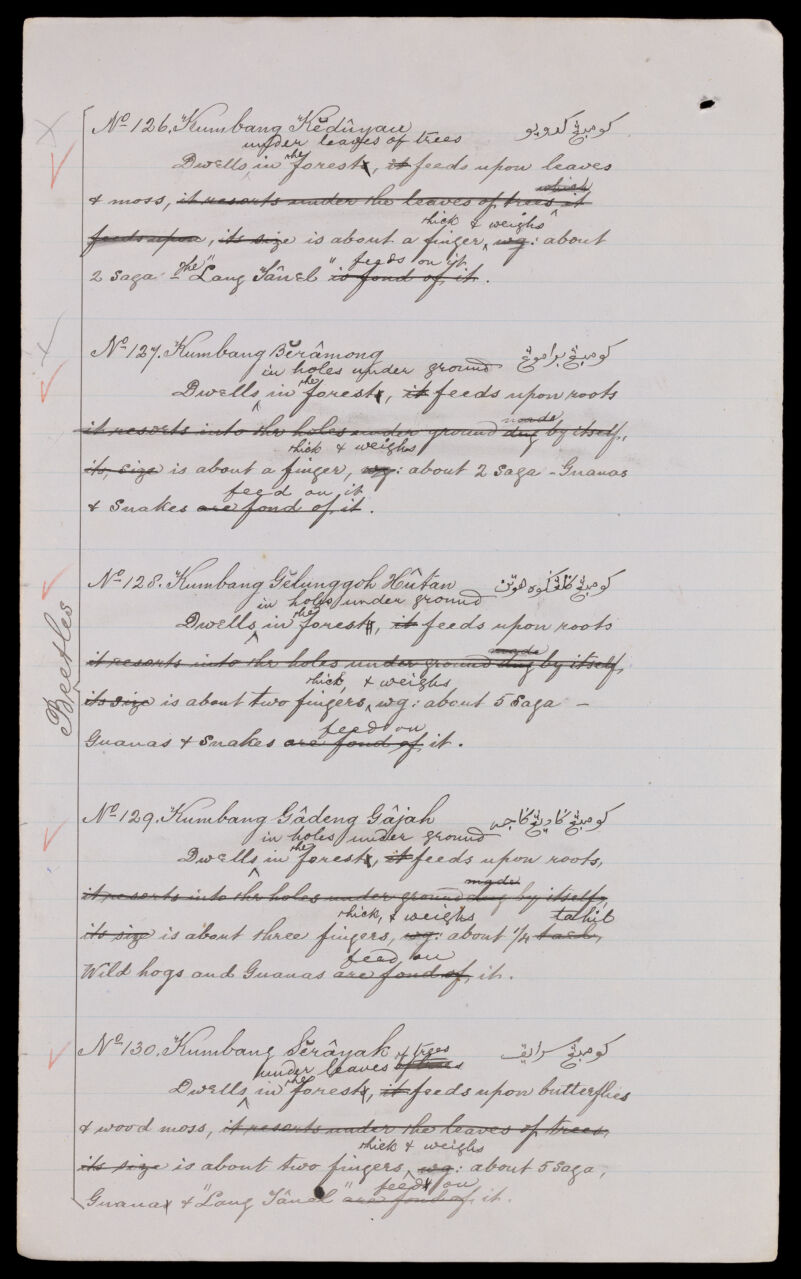 Beetles
No 126. Kumbang Kĕdûyau كومبڠ كدويو
under leaves of trees
Dwells, in the forests, it feeds upon leaves
which
& moss, it resorts under the leaves of trees it
thick & weighs
feeds upon, its size is about a finger, wg: about
feeds on it
2 saga - The "Lang Tânel" is fond of it.
No 127. Kumbang Bĕrâmong كومبڠ براموڠ
in holes under ground
Dwells, in the forests, it feeds upon roots
made
it resorts into the holes under ground dug by itself,
thick & weighs
its, size is about a finger, wg: about 2 saga - Guanas
feed on it
& Snakes are fond of it.
No 128. Kumbang Gĕlunggoh Hûtan
in holes under ground
Dwells, in the forests, it feeds upon roots
made
it resorts into the holes under ground dug by itself,
thick, & weighs
its size is about two fingers, wg: about 5 Saga -
feed on
Guanas & Snakes are fond of it.
No 129. Kumbang Gâdeng Gâjah كومبڠ ݢاديڠ ݢاجه
in holes under ground
Dwells in the forests, it feeds upon roots,
made
it resorts into the holes under ground dug by itself,
thick, & weighs tahil
its size is about three fingers, wg: about 1/4 tael,
feed on
Wild hogs and Guanas are fond of it.
No 130. Kumbang Sĕrâyak كومبڠ سرايق
under leaves of trees of trees
Dwells, in the forests, it feeds upon butterflies
& wood moss, it resorts under the leaves of trees,
thick & weighs
its size is about two fingers, wg: about 5 saga,
feeds on
Guanas & "Lang Tânel" are fond of it.